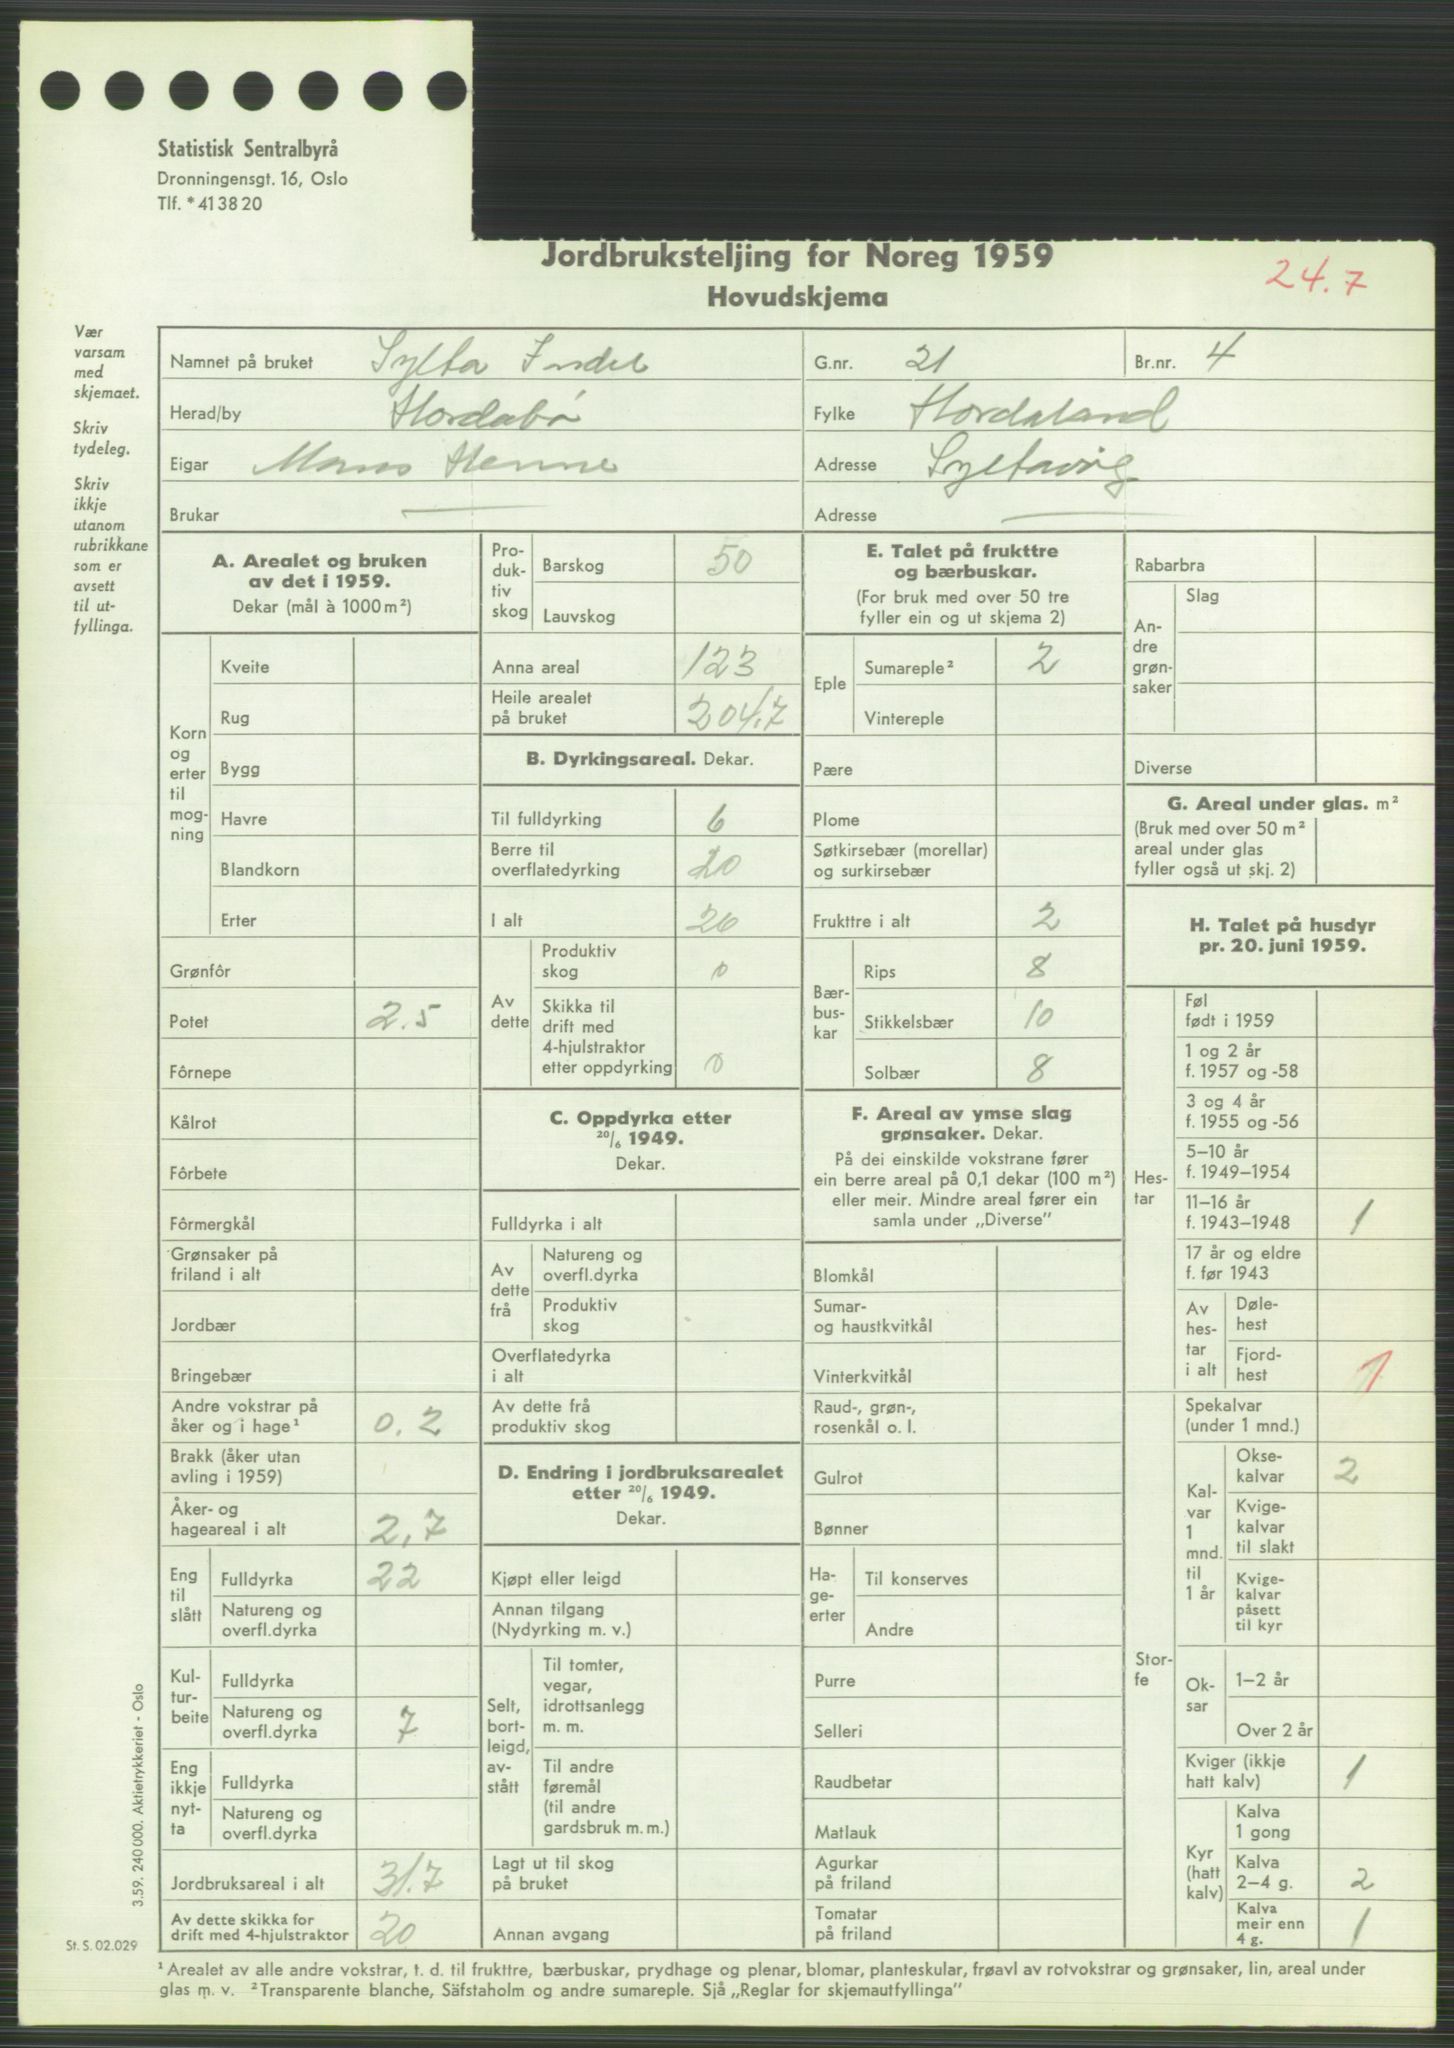 Statistisk Sentralbyrå
Dronningensgt. 16, Oslo
Tlf. * 41 38 20
Jordbruksteljing for Noreg 1959
24.7
Hovudskjema
Vær
varsam
med
skjemaet.
Skriv
tydeleg.
Skriv
ikkje
utanom
rubrikkane
som er
avsett
til ut-
fyllinga.
Namnet på bruket Sylta Indre
G.nr. 21
Br.nr. 4
Herad/by Hordabø
Fylke Hordaland
Eigar Mons Henne
Adresse Syltavåg
Brukar —
Adresse —
A. Arealet og bruken
av det i 1959.
Dekar (mål à 1000 m²)
Korn
og
erter
til
mog-
ning
Kveite
Rug
Bygg
Havre
Blandkorn
Erter
Grønfôr
Potet 2.5
Fôrnepe
Kålrot
Fôrbete
Fôrmergkål
Grønsaker på
friland i alt
Jordbær
Bringebær
Andre vokstrar på
åker og i hage¹ 0.2
Brakk (åker utan
avling i 1959)
Åker- og
hageareal i alt 2,7
Eng
til
slått
Fulldyrka 22
Natureng og
overfl.dyrka
Kul-
tur-
beite
Fulldyrka
Natureng og
overfl.dyrka 7
Eng
ikkje
nyt-
ta
Fulldyrka
Natureng og
overfl.dyrka
Jordbruksareal i alt 31.7
Av dette skikka for
drift med 4-hjulstraktor 20
Pro-
duk-
tiv
skog
Barskog 50
Lauvskog
Anna areal 123
Heile arealet
på bruket 204.7
B. Dyrkingsareal. Dekar.
Til fulldyrking 6
Berre til
overflatedyrking 20
I alt 26
Av
dette
Produktiv
skog 0
Skikka til
drift med
4-hjulstraktor
etter oppdyrking 0
C. Oppdyrka etter
20/6 1949.
Dekar.
Fulldyrka i alt
Av
dette
frå
Natureng og
overfl.dyrka
Produktiv
skog
Overflatedyrka
i alt
Av dette frå
produktiv skog
D. Endring i jordbruksarealet
etter 20/6 1949.
Dekar.
Kjøpt eller leigd
Annan tilgang
(Nydyrking m. v.)
Selt,
bort-
leigd,
av-
stått
Til tomter,
vegar,
idrottsanlegg
m. m.
Til andre
føremål
(til andre
gardsbruk m. m.)
Lagt ut til skog
på bruket
Annan avgang
E. Talet på frukttre
og bærbuskar.
(For bruk med over 50 tre
fyller ein og ut skjema 2)
Eple
Sumareple² 2
Vintereple
Pære
Plome
Søtkirsebær (morellar)
og surkirsebær
Frukttre i alt 2
Bær-
bus-
kar
Rips 8
Stikkelsbær 10
Solbær 8
F. Areal av ymse slag
grønsaker. Dekar.
På dei einskilde vokstrane fører
ein berre areal på 0,1 dekar (100 m²)
eller meir. Mindre areal fører ein
samla under „Diverse”
Blomkål
Sumar-
og haustkvitkål
Vinterkvitkål
Raud-, grøn-,
rosenkål o. l.
Gulrot
Bønner
Ha-
ge-
erter
Til konserves
Andre
Purre
Selleri
Raudbetar
Matlauk
Agurkar
på friland
Tomatar
på friland
Rabarbra
An-
dre
grøn-
saker
Slag
Diverse
G. Areal under glas. m²
(Bruk med over 50 m²
areal under glas
fyller også ut skj. 2)
H. Talet på husdyr
pr. 20. juni 1959.
Hes-
tar
Føl
født i 1959
1 og 2 år
f. 1957 og -58
3 og 4 år
f. 1955 og -56
5–10 år
f. 1949–1954
11–16 år
f. 1943–1948 1
17 år og eldre
f. før 1943
Av
hes-
tar
i alt
Døle-
hest
Fjord-
hest 1
Stor-
fe
Spekalvar
(under 1 mnd.)
Kal-
var
1
mnd.
til
1 år
Okse-
kalvar 2
Kvige-
kalvar
til slakt
Kvige-
kalvar
påsett
til kyr
Ok-
sar
1–2 år
Over 2 år
Kviger (ikkje
hatt kalv) 1
Kyr
(hatt
kalv)
Kalva
1 gong
Kalva
2–4 g. 2
Kalva
meir enn
4 g. 1
3.59. 240 000. Aktietrykkeriet - Oslo
St. S. 02.029
¹ Arealet av alle andre vokstrar, t. d. til frukttre, bærbuskar, prydhage og plenar, blomar, planteskular, frøavl av rotvokstrar og grønsaker, lin, areal under
glas m. v. ² Transparente blanche, Säfstaholm og andre sumareple. Sjå „Reglar for skjemautfyllinga”